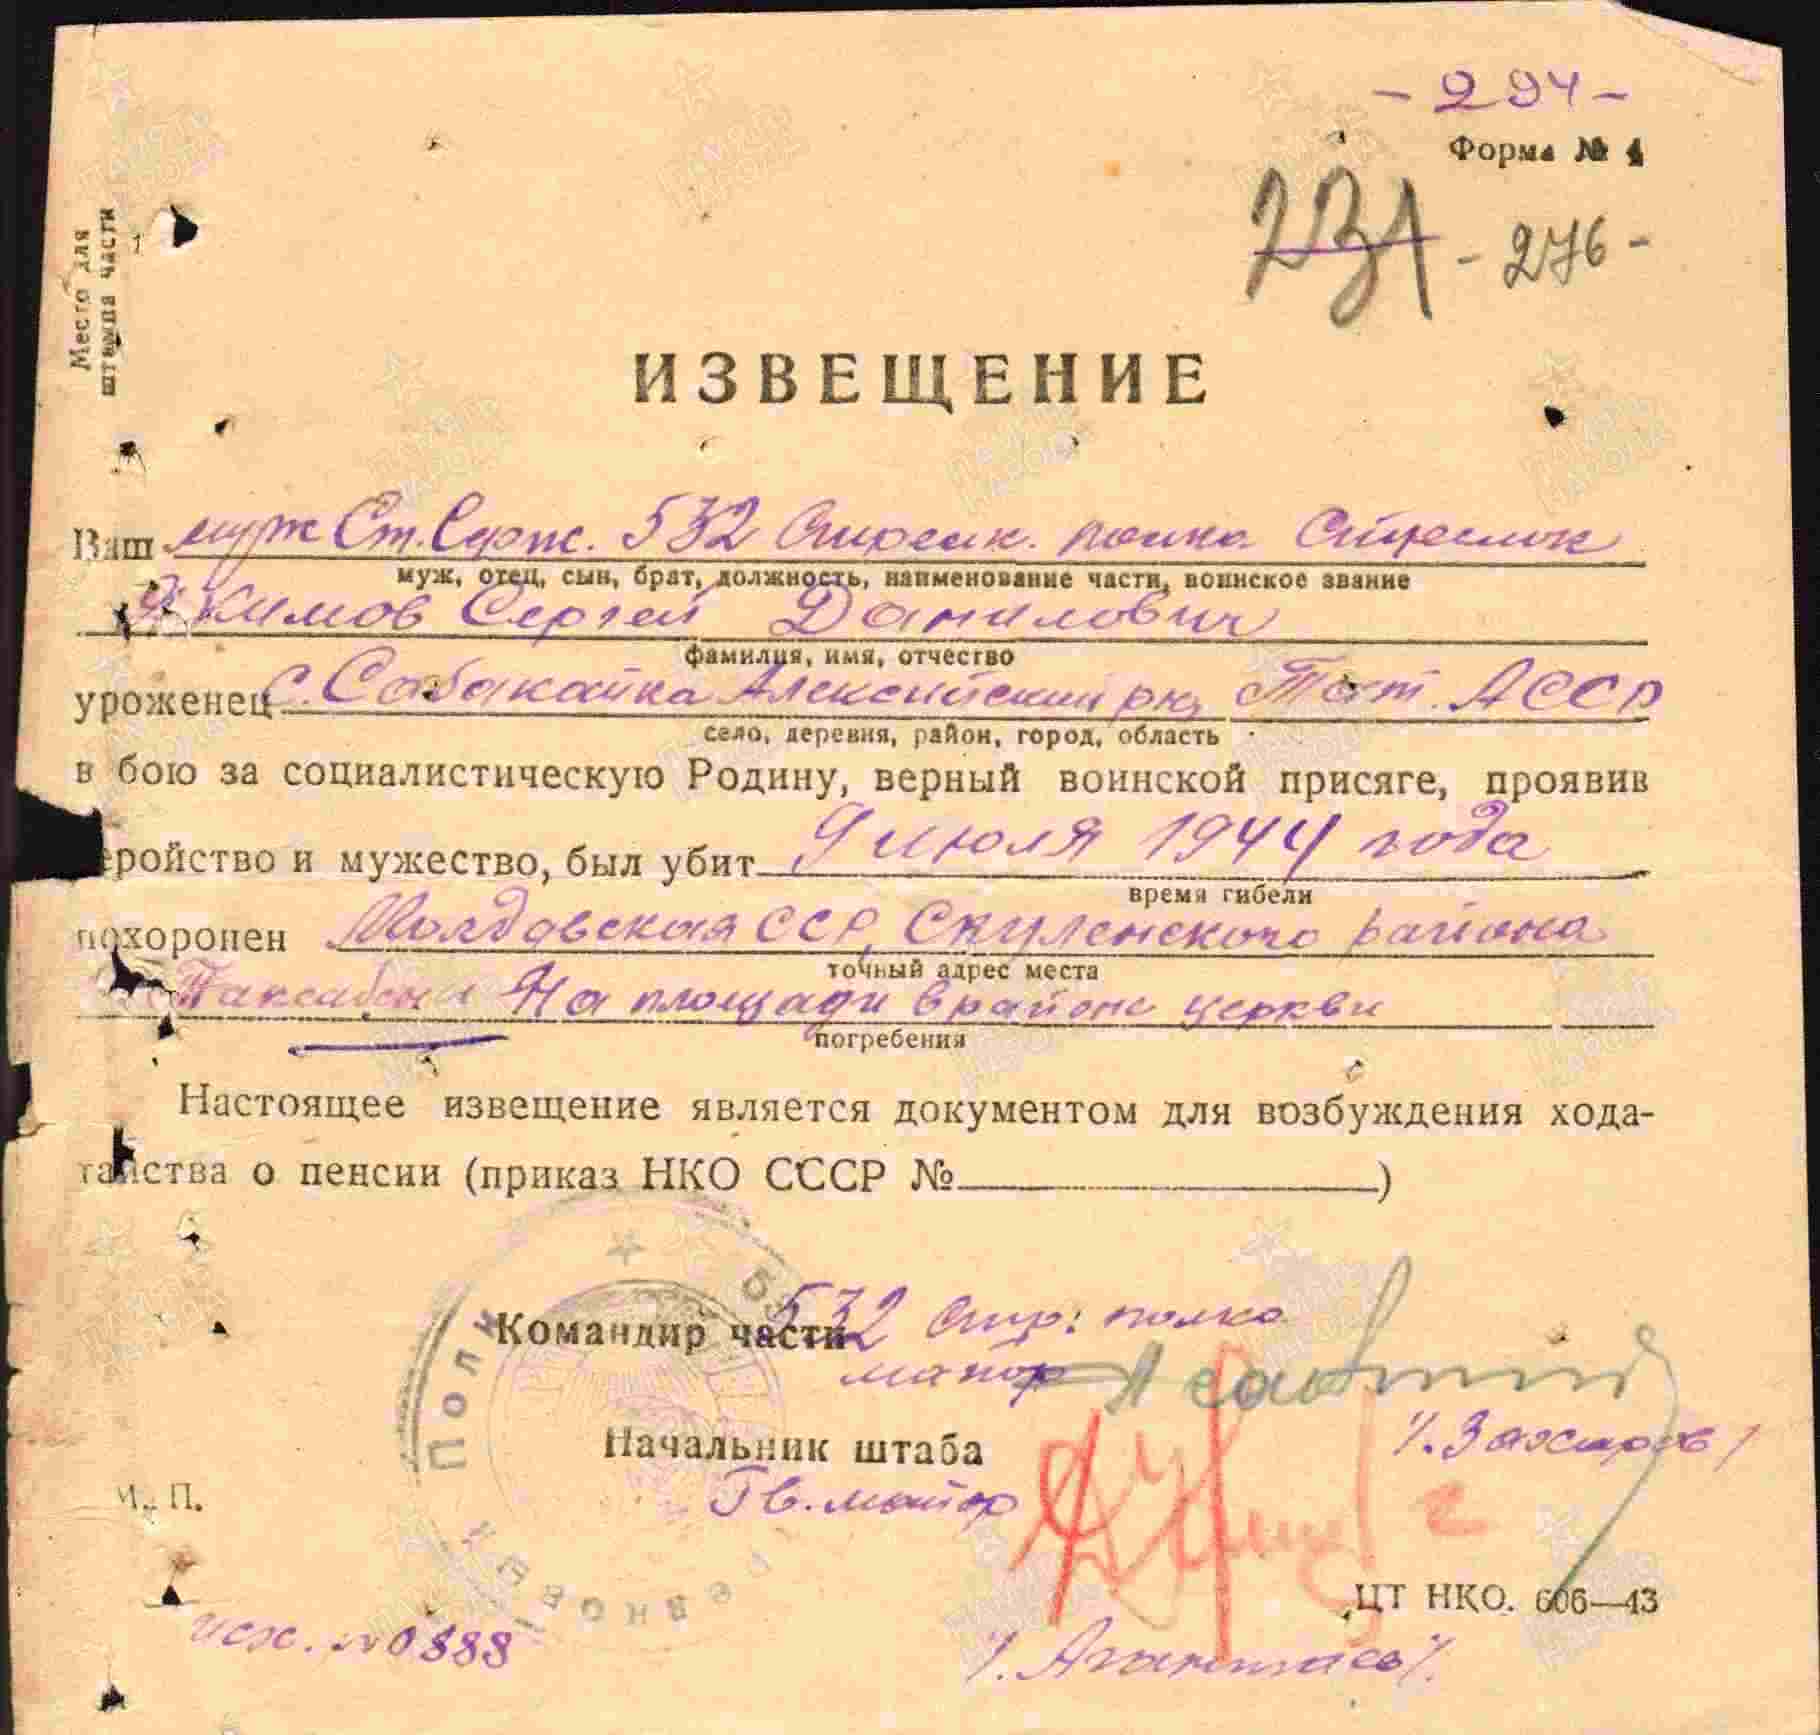 - 294 -
Форма № 4
231 - 276 -
Место для
штампа части
ИЗВЕЩЕНИЕ
Ваш муж Ст. Серж. 532 Стрелк. полка Стрелок
муж, отец, сын, брат, должность, наименование части, воинское звание
Якимов Сергей Данилович
фамилия, имя, отчество
уроженец с. Сабакайка Алексеевский р-н, Тат. АССР
село, деревня, район, город, область
в бою за социалистическую Родину, верный воинской присяге, проявив
геройство и мужество, был убит 9 июля 1944 года
время гибели
похоронен Молдавская ССР, Скуленского района
точный адрес места
На площади в районе церкви
погребения
Настоящее извещение является документом для возбуждения хода-
тайства о пенсии (приказ НКО СССР № )
Командир части 532 стр: полка
майор
/. Захаров /
Начальник штаба
Гв. майор
М. П.
ЦТ НКО. 606—43
исх. № 0888